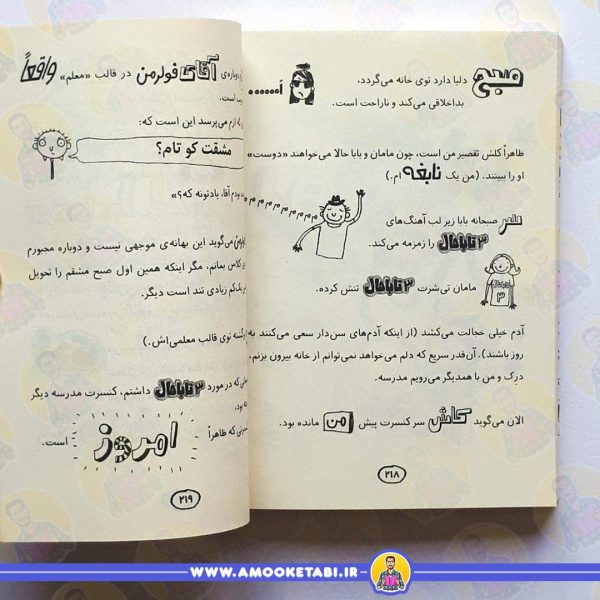 صبح دلیا دارد توی خانه می‌گردد،
اَ......
بداخلاقی می‌کند و ناراحت است.
ظاهراً کلش تقصیر من است، چون مامان و بابا حالا می‌خواهند «دوست»
او را ببینند. (من یک نابغه ام.)
سر صبحانه بابا زیر لب آهنگ‌های
۳ تا باحال را زمزمه می‌کند.
مامان تی‌شرت ۳ تا باحال تنش کرده.
۳
آدم خیلی خجالت می‌کشد (از اینکه آدم‌های سن‌دار سعی می‌کنند به
روز باشند). آن‌قدر سریع که دلم می‌خواهد نمی‌توانم از خانه بیرون بزنم.
درک و من با همدیگر می‌رویم مدرسه.
الان می‌گوید کاش سر کنسرت پیش من مانده بود.
۲۱۸
درباره‌ی آقای فولرمن در قالب «معلم» واقعاً
است.
ازم می‌پرسد این است که:
مشقت کو تام؟
بودم آقا، یادتونه که؟»
می‌گوید این بهانه‌ی موجهی نیست و دوباره مجبورم
کلاس بمانم، مگر اینکه همین اول صبح مشقم را تحویل
زیادی تند است دیگر.
برگشته توی قالب معلمی‌اش.)
که در مورد ۳ تا باحال داشتم، کنسرت مدرسه دیگر
که ظاهراً امروز است.
۲۱۹
WWW.AMOOKETABI.IR